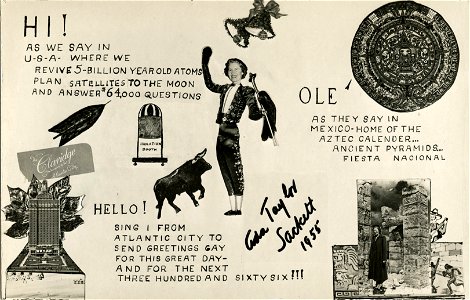 HI!
AS WE SAY IN
U-S-A- WHERE WE
REVIVE 5-BILLION YEAR OLD ATOMS
PLAN SATELLITES TO THE MOON
AND ANSWER $64,000 QUESTIONS
ISOLATION
BOOTH
OLE'
AS THEY SAY IN
MEXICO-HOME OF THE
AZTEC CALENDER...
ANCIENT PYRAMIDS...
FIESTA NACIONAL
The Claridge
HELLO!
SING I FROM
ATLANTIC CITY TO
SEND GREETINGS GAY
FOR THIS GREAT DAY-
AND FOR THE NEXT
THREE HUNDRED AND SIXTY SIX!!!
Ada Taylor
Sackett
1956